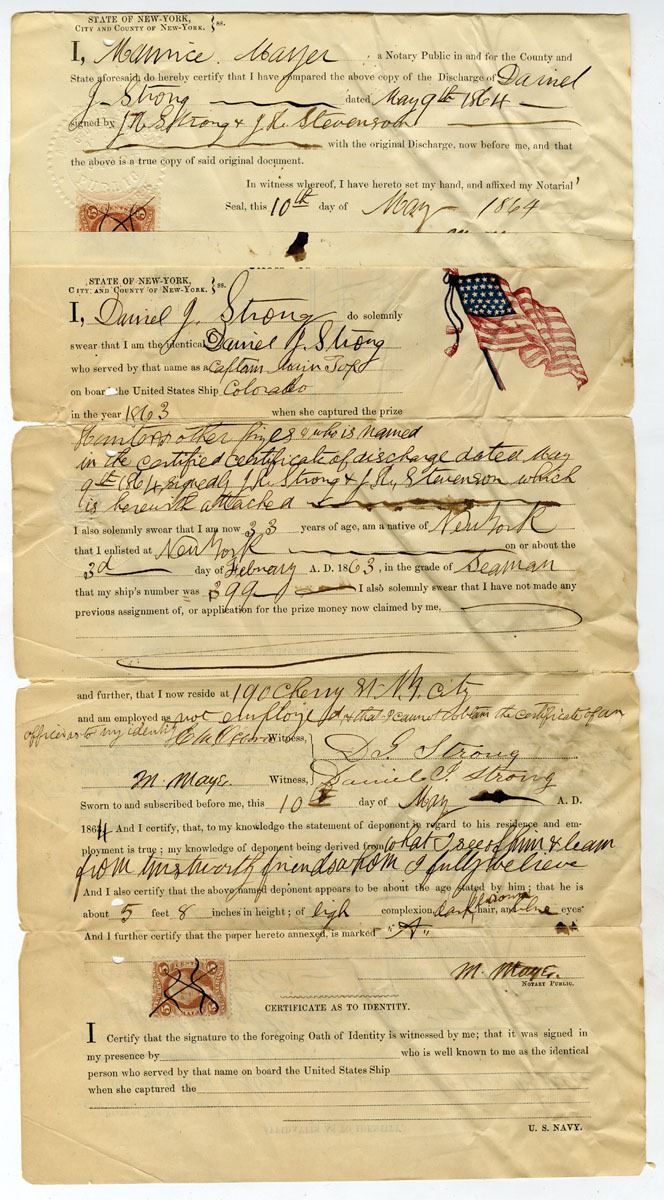 STATE OF NEW-YORK,
CITY AND COUNTY OF NEW-YORK. } ss.
I, Maurice Mayer a Notary Public in and for the County and
State aforesaid do hereby certify that I have compared the above copy of the Discharge of Daniel
J. Strong dated May 9th 1864
signed by J. R. Strong & J. R. Stevenson
with the original Discharge, now before me, and that
the above is a true copy of said original document.
In witness whereof, I have hereto set my hand, and affixed my Notarial
Seal, this 10th day of May 1864
STATE OF NEW-YORK,
CITY AND COUNTY OF NEW-YORK. } ss.
I, Daniel J. Strong do solemnly
swear that I am the identical Daniel J. Strong
who served by that name as a Captain Main Top
on board the United States Ship Colorado
in the year 1863 when she captured the prize
Hunter & other prizes & who is named
in the certified certificate of discharge dated May
9th 1864, signed J. R. Strong & J. R. Stevenson which
is herewith attached
I also solemnly swear that I am now 33 years of age, am a native of New York
that I enlisted at New York on or about the
3d day of February A. D. 1863, in the grade of Seaman
that my ship's number was 399 I also solemnly swear that I have not made any
previous assignment of, or application for the prize money now claimed by me.
and further, that I now reside at 190 Cherry St. N. Y. City
and am employed as not employed & that I cannot obtain the certificate of an
officer as to my identity
Witness, D. J. Strong
M. Mayer Witness, Daniel J. Strong
Sworn to and subscribed before me, this 10th day of May A. D.
1864 And I certify, that, to my knowledge the statement of deponent in regard to his residence and em-
ployment is true; my knowledge of deponent being derived from what I see of him & learn
from trustworthy friends whom I fully believe
And I also certify that the above named deponent appears to be about the age stated by him; that he is
about 5 feet 8 inches in height; of ligh complexion, dark brown hair, and blue eyes
And I further certify that the paper hereto annexed, is marked "A"
M. Mayer
NOTARY PUBLIC.
CERTIFICATE AS TO IDENTITY.
I Certify that the signature to the foregoing Oath of Identity is witnessed by me; that it was signed in
my presence by who is well known to me as the identical
person who served by that name on board the United States Ship
when she captured the
U. S. NAVY.